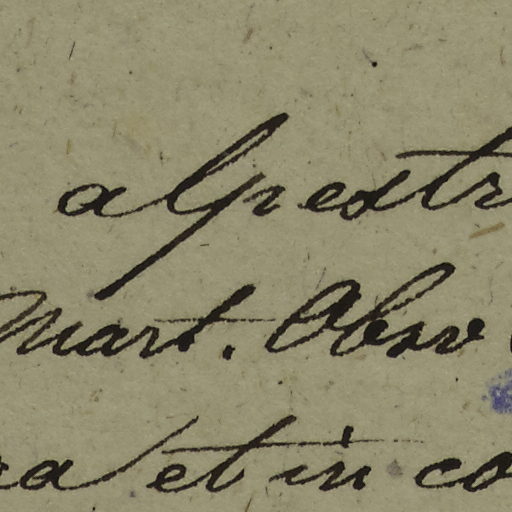 alpestr
Mart. Obsv
ra et in co